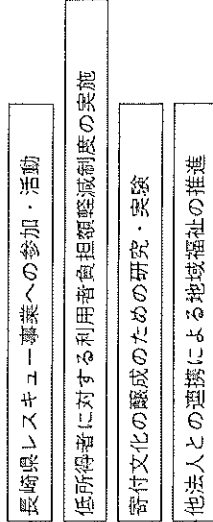 長崎県レスキュー事業への参加・活動
低所得者に対する利用者負担額軽減制度の実施
寄付文化の醸成のための研究・実験
他法人との連携による地域福祉の推進